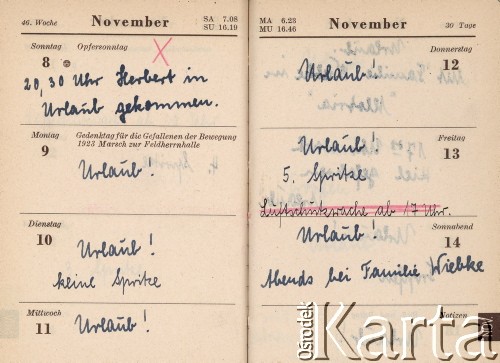 46. Woche
November
SA 7.08
SU 16.19
Sonntag
8
Opfersonntag
20,30 Uhr Herbert in
Urlaub gekommen.
Montag
9
Gedenktag für die Gefallenen der Bewegung
1923 Marsch zur Feldherrnhalle
Urlaub!
Dienstag
10
Urlaub!
keine Spritze
Mittwoch
11
Urlaub!
MA 6.23
MU 16.46
November
30 Tage
Donnerstag
12
Urlaub!
Freitag
13
Urlaub!
5. Spritze
Luftschutzwache ab 17 Uhr.
Sonnabend
14
Urlaub!
Abends bei Familie Wiebke
Notizen
NOV
Ośrodek
Karta